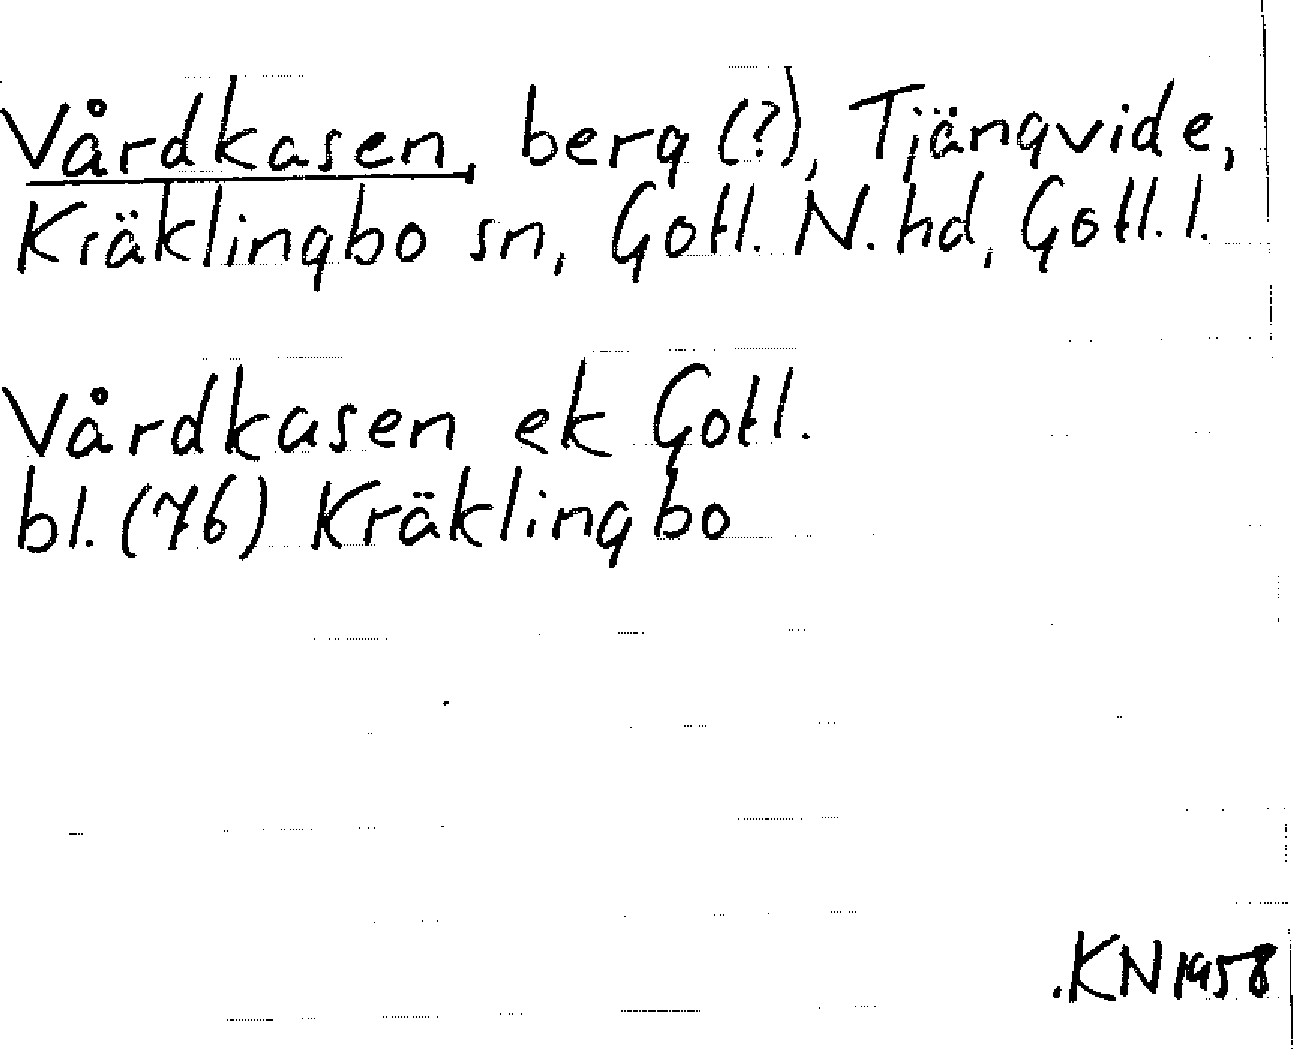 Vårdkasen, berg (?), Tjängvide,
Kräklingbo sn, Gotl. N. hd, Gotl. l.
Vårdkasen ek Gotl.
bl. (76) Kräklingbo
KN 1958